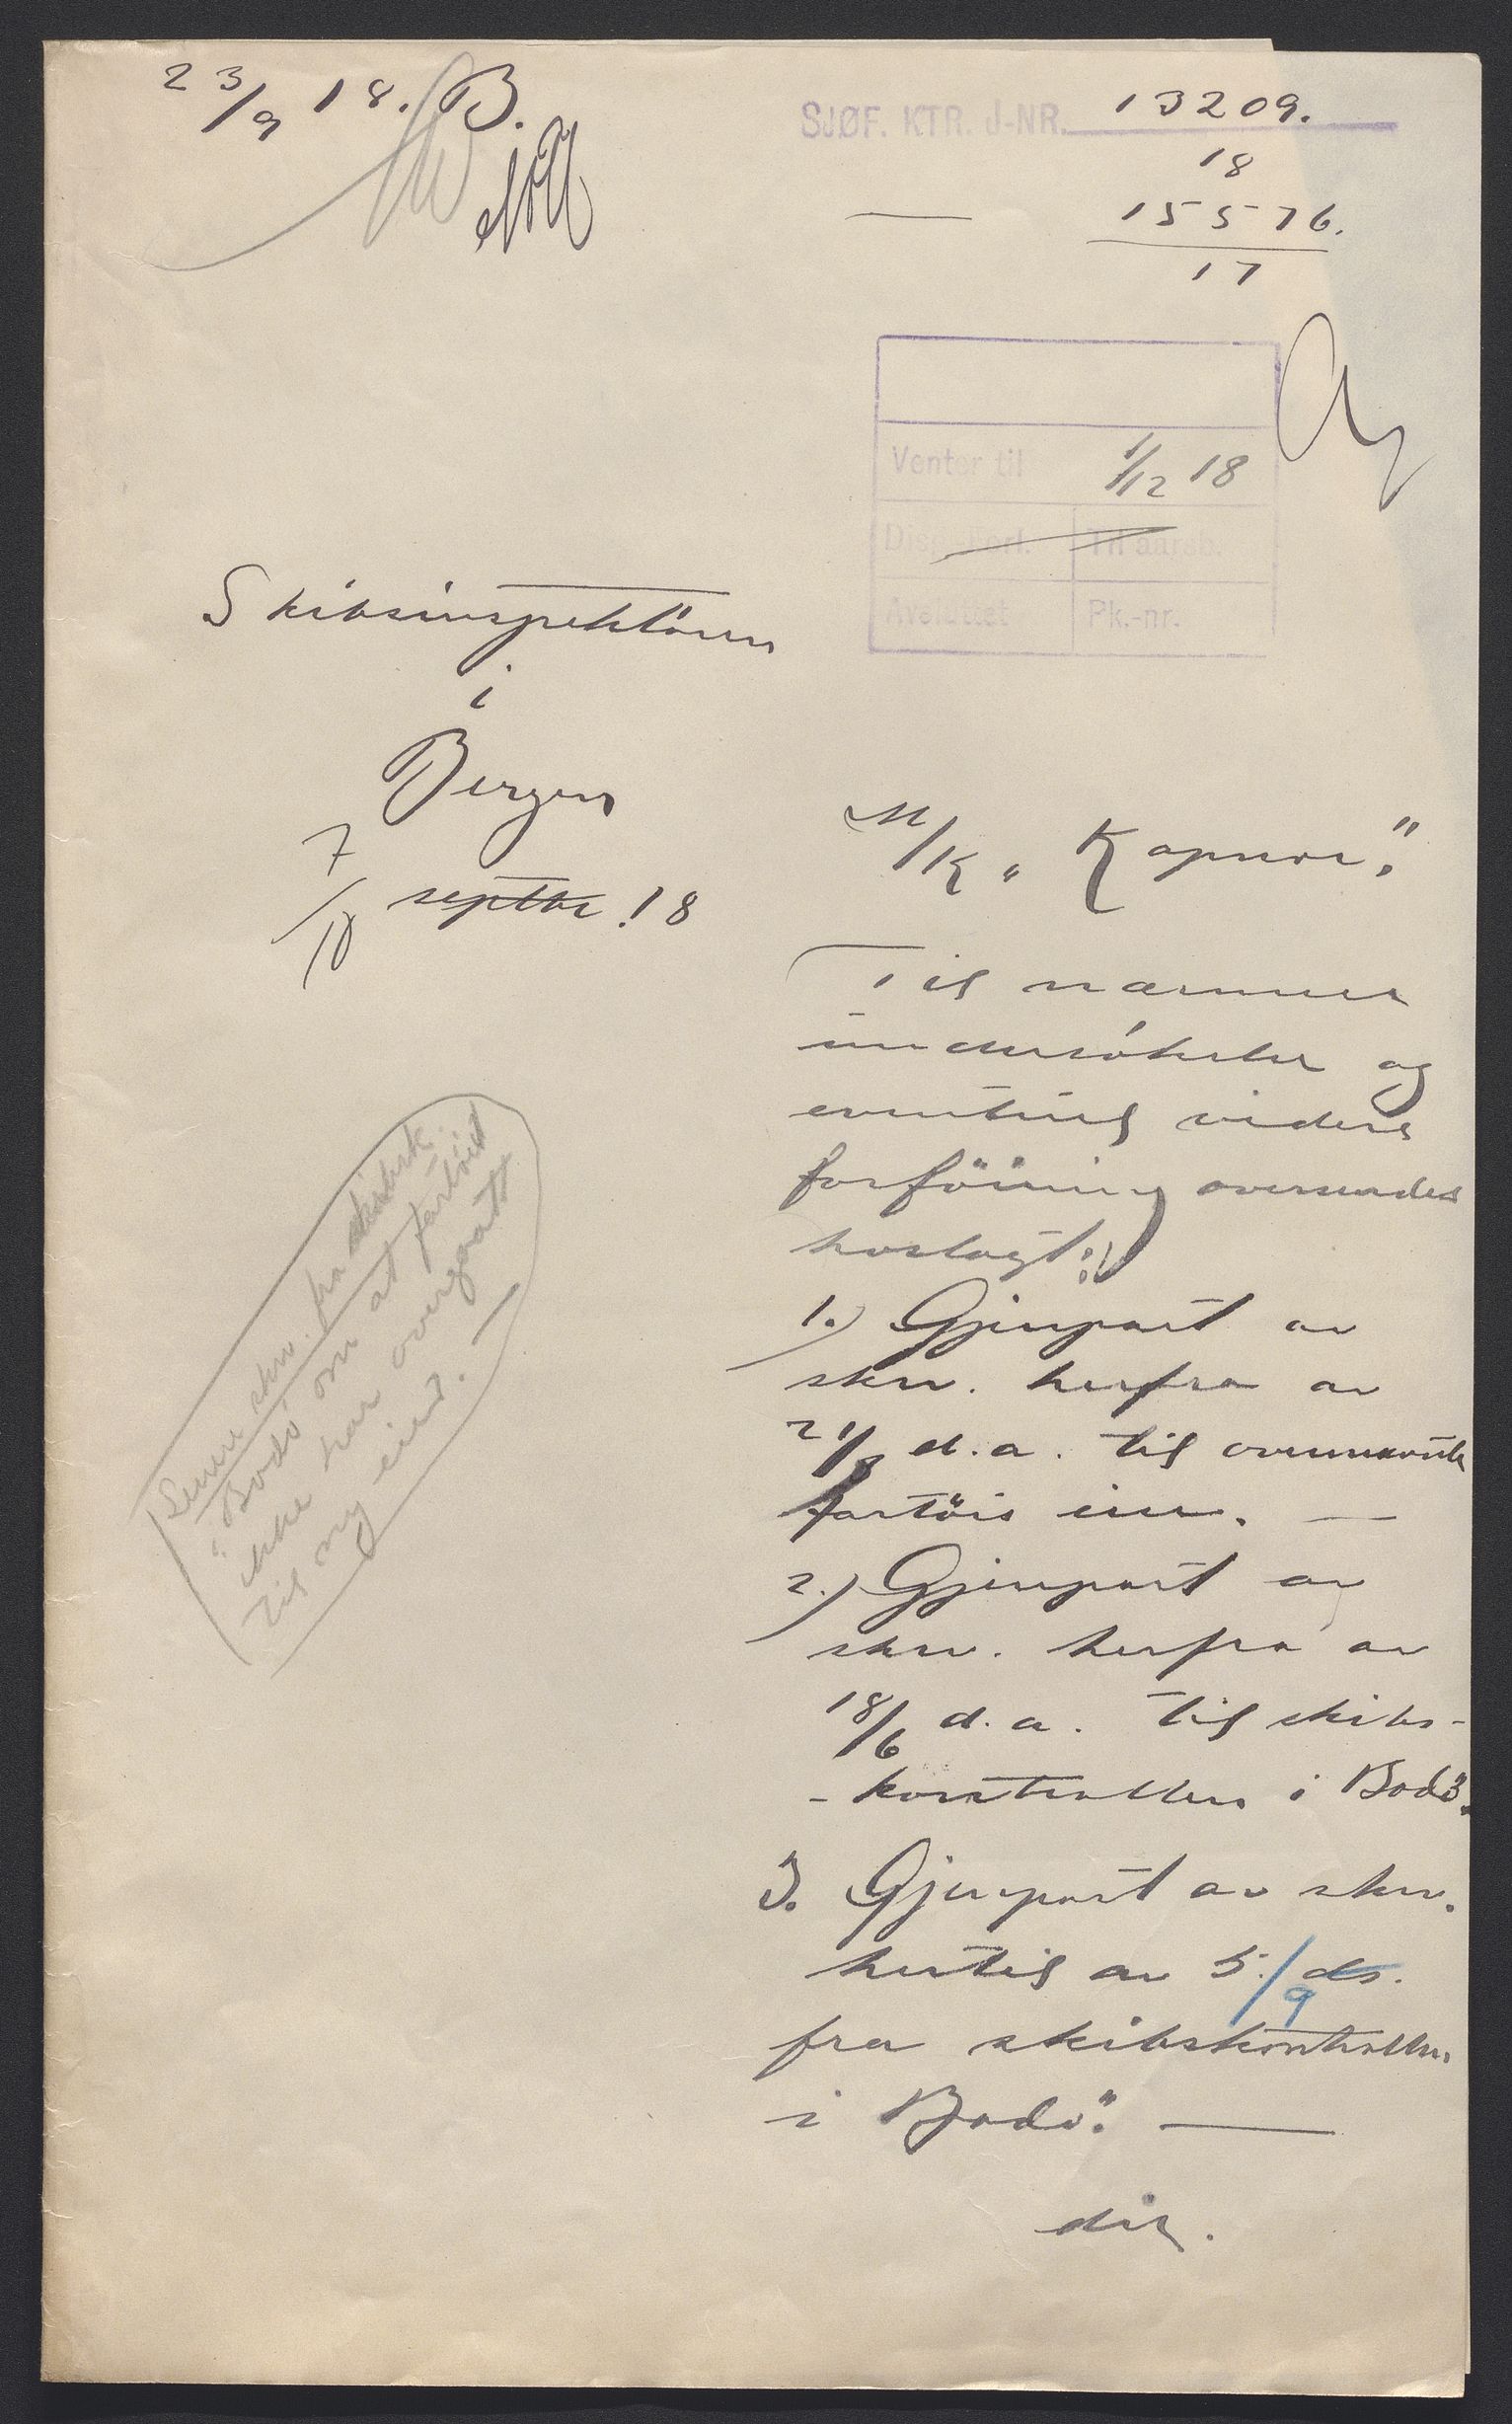 23/9 18. B.
SJØF. KTR. J-NR. 13209.
18
15576.
17
Venter til 1/12 18
Disp.-Forl. Til aarsb.
Avsluttet Pk.-nr.
Skibsinspektören
i
Bergen
7/10 septbr. 18
M/K "Kapnor".
Til nærmere
undersökelse og
eventuel videre
forföining oversendes
hoslagt:
1.) Gjenpart av
skr. herfra av
21/8 d.a. til ovennævnte
fartöis eier. —
2.) Gjenpart av
skr. herfra av
18/6 d.a. til skibs-
-kontrollen i Bodö.
3. Gjenpart av skr.
hertil av 5./9 ds.
fra skibskontrollen
i Bodö. —
dir.
skr. fra
i Bodö om at fartöiet
ikke har overgaat
til ny eier. —